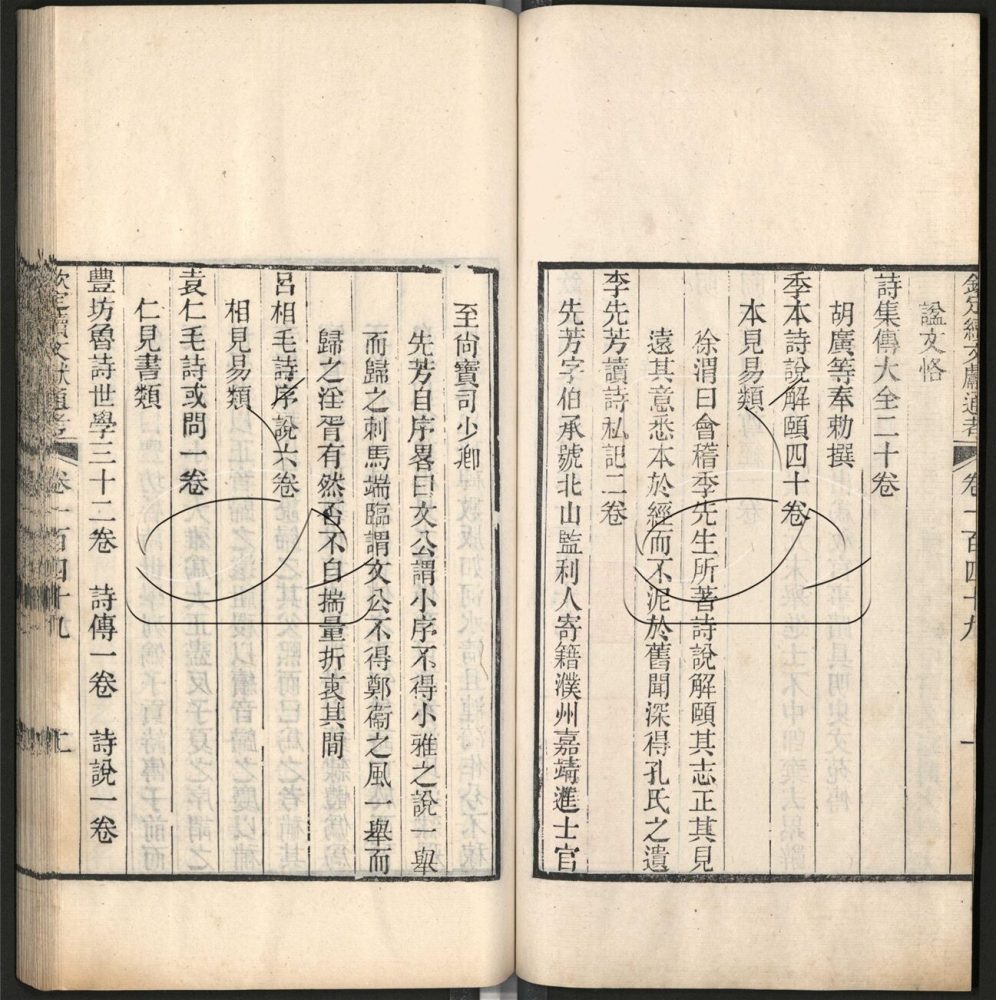 欽定續文獻通考 卷一百四十九 一
諡文恪
詩集傳大全二十卷
胡廣等奉勅撰
季本詩說解頤四十卷
本見易類
徐渭曰會稽季先生所著詩說解頤其志正其見
遠其意悉本於經而不泥於舊聞深得孔氏之遺
李先芳讀詩私記二卷
先芳字伯承號北山監利人寄籍濮州嘉靖進士官
至尙寶司少卿
先芳自序畧曰文公謂小序不得小雅之說一舉
而歸之刺馬端臨謂文公不得鄭衞之風一舉而
歸之淫胥有然否不自揣量折衷其間
呂相毛詩序說六卷
相見易類
袁仁毛詩或問一卷
仁見書類
豐坊魯詩世學三十二卷 詩傳一卷 詩說一卷
欽定續文獻通考 卷一百四十九